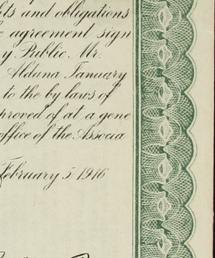 ts and obligations
e agreement sign
y Public. Mr.
Aldana January
to the by laws of
proved of at a gene
office of the Associa
February 5 1916